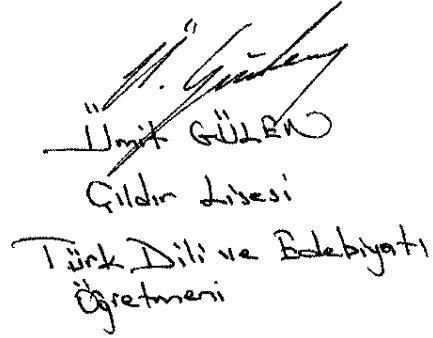 Ü. Gülen
Ümit GÜLEN
Çıldır Lisesi
Türk Dili ve Edebiyatı
Öğretmeni